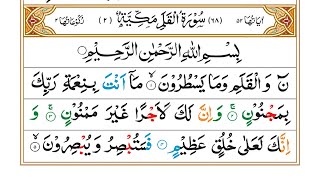 اٰیاتها ٥٢ (٦٨) سُوْرَةُ الْقَلَمِ مَكِّیَّةٌ (٢) رکوعاتها ٢
بِسْمِ اللّٰهِ الرَّحْمٰنِ الرَّحِیْمِ
نٓ وَ الْقَلَمِ وَ مَا یَسْطُرُوْنَ ۙ۱ مَاۤ اَنْتَ بِنِعْمَةِ رَبِّكَ
بِمَجْنُوْنٍ ۚ۲ وَ اِنَّ لَكَ لَاَجْرًا غَیْرَ مَمْنُوْنٍ ۚ۳ وَ
اِنَّكَ لَعَلٰى خُلُقٍ عَظِیْمٍ ۴ فَسَتُبْصِرُ وَ یُبْصِرُوْنَ ۙ۵